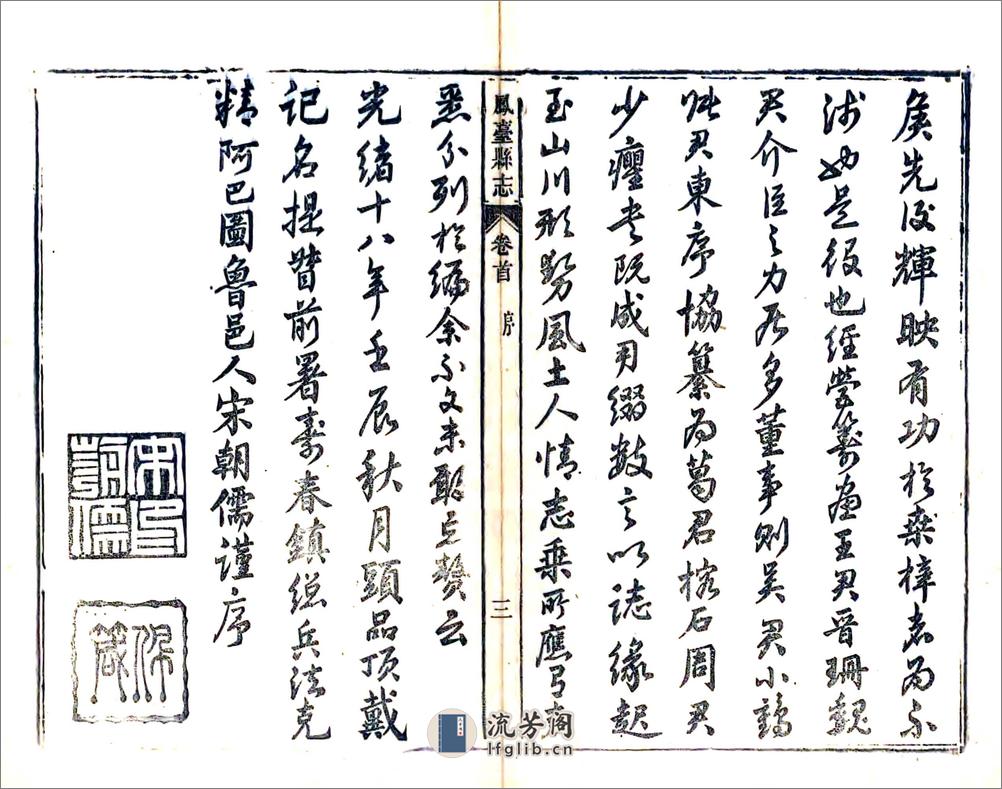 矦先後輝映有功於桑梓者為不
淺也是役也經營籌畫王君晉珊魏
君介臣之力居多董事則吳君小鶴
張君東序協纂為葛君榕石周君
少癯書既成用綴數言以誌緣起
至山川形勢風土人情志乘所應有
鳳臺縣志 卷首 序 三
悉分列於編余不文未敢妄贅云
光緒十八年壬辰秋月頭品頂戴
記名提督前署壽春鎮總兵法克
精阿巴圖魯邑人宋朝儒謹序
流芳阁
lfglib.cn